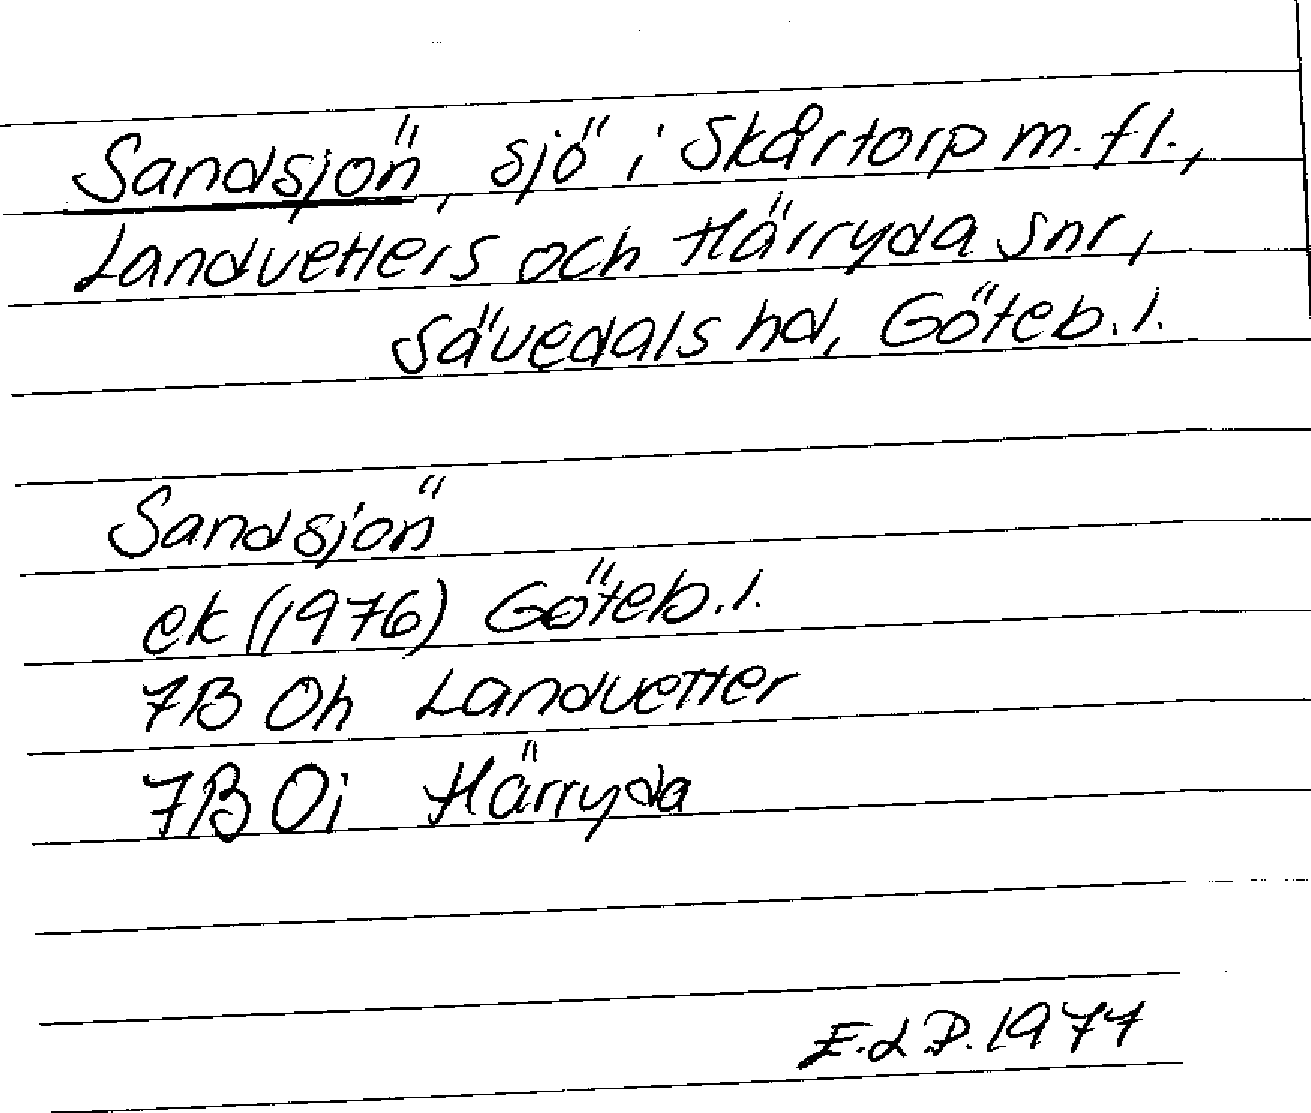 Sandsjön, sjö i Skårtorp m.fl.,
Landvetters och Härryda snr,
Sävedals hd, Göteb.l.
Sandsjön
ek (1976) Göteb.l.
7B 0h Landvetter
7B 0i Härryda
E.L.P. 1977